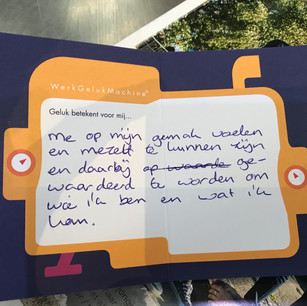 WerkGelukMachine®
Geluk betekent voor mij...
me op mijn gemak voelen
en mezelf te kunnen zijn
en daarbij op waarde ge-
waardeerd te worden om
wie ik ben en wat ik
kan.